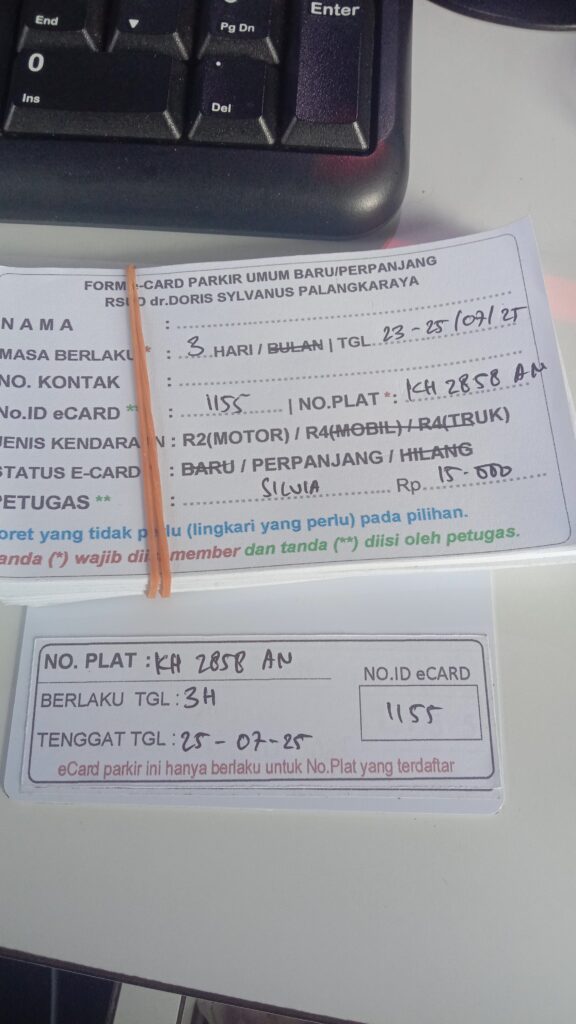 End
Pg Dn
Enter
0
Ins
.
Del
FORM e-CARD PARKIR UMUM BARU/PERPANJANG
RSUD dr.DORIS SYLVANUS PALANGKARAYA
NAMA :
MASA BERLAKU * : 3 HARI / BULAN | TGL. 23 - 25/07/25
NO. KONTAK :
No.ID eCARD ** : 1155 | NO.PLAT *: KH 2858 AN
JENIS KENDARAAN : R2(MOTOR) / R4(MOBIL) / R4(TRUK)
STATUS E-CARD : BARU / PERPANJANG / HILANG
PETUGAS ** : SILVIA Rp. 15.000
oret yang tidak perlu (lingkari yang perlu) pada pilihan.
anda (*) wajib diisi member dan tanda (**) diisi oleh petugas.
NO. PLAT : KH 2858 AN
NO.ID eCARD
BERLAKU TGL : 3H
1155
TENGGAT TGL : 25 - 07 - 25
eCard parkir ini hanya berlaku untuk No.Plat yang terdaftar